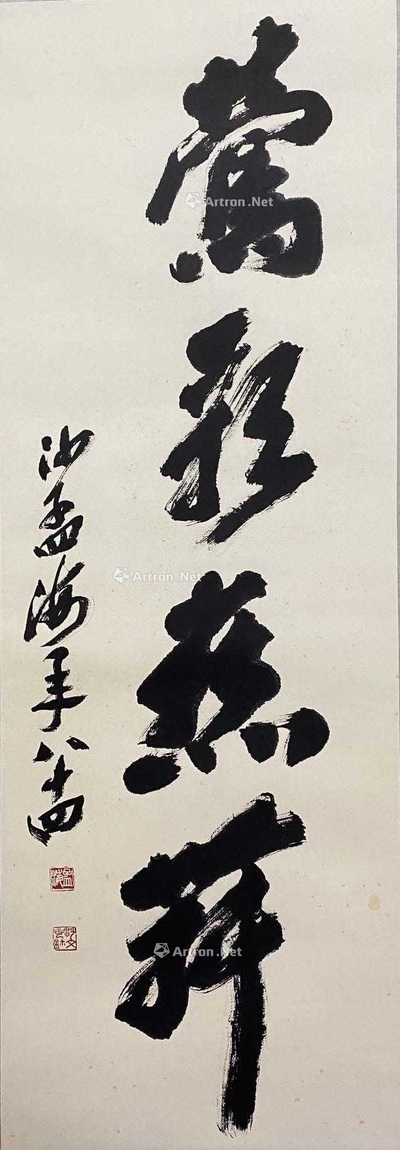 鶯歌燕舞
沙孟海年八十四
Artron.Net
Artron.Net
Artron.Net